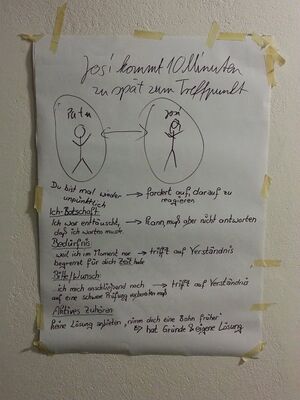 Josi kommt 10 Minuten
zu spät zum Treffpunkt
Josi
Du bist mal wieder → fordert auf, darauf zu
unpünktlich reagieren
Ich-Botschaft:
Ich war enttäuscht, → kann, muß aber nicht antworten
daß ich warten musste
Bedürfnis
weil ich im Moment nur → trifft auf Verständnis
begrenzt für dich Zeit habe
Bitte/Wunsch:
ich mich anschließend noch → trifft auf Verständnis
auf eine schwere Prüfung vorbereiten muß
Aktives Zuhören
keine Lösung anbieten, nimm dich eine Bahn früher
hat Gründe & eigene Lösung